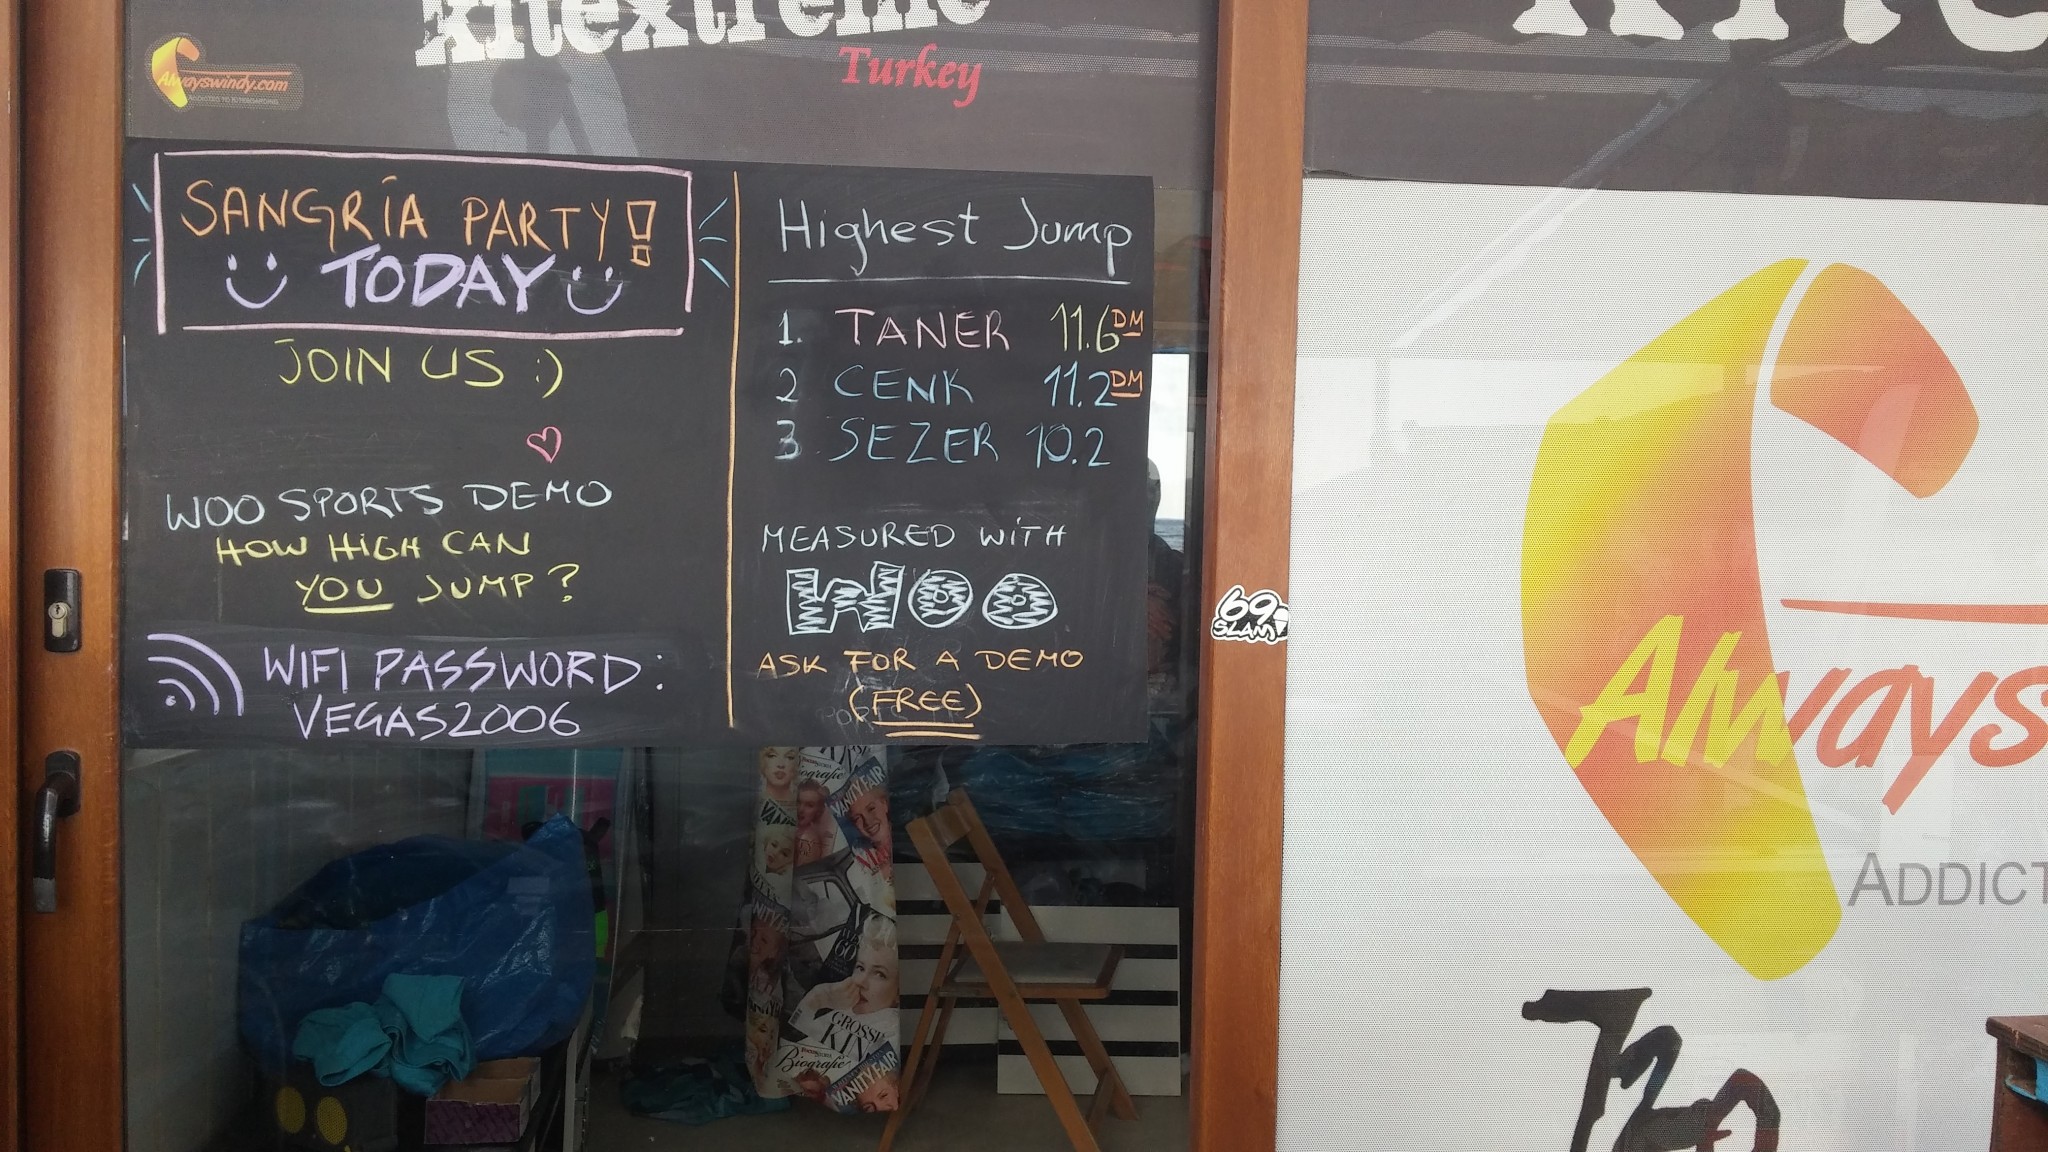 kitextreme
Turkey
Alwayswindy.com
ADDICTED TO KITEBOARDING
SANGRIA PARTY!
TODAY
JOIN US :)
WOO SPORTS DEMO
HOW HIGH CAN
YOU JUMP?
WIFI PASSWORD:
VEGAS2006
Highest Jump
1. TANER 11.6 DM
2 CENK 11.2 DM
3 SEZER 10.2
MEASURED WITH
WOO
ASK FOR A DEMO
(FREE)
69
SLAM
Always
ADDICT
Biografie
VANITY FAIR
GROSSE
Biografie
VANITY FAIR